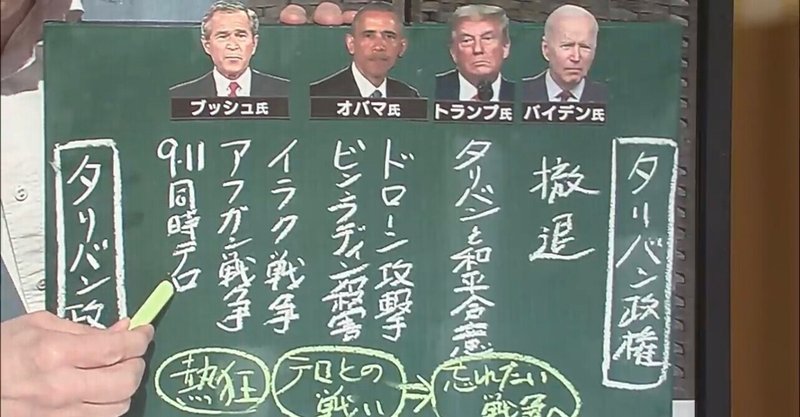 ブッシュ氏
オバマ氏
トランプ氏
バイデン氏
タリバン政
9.11同時テロ
アフガン戦争
イラク戦争
ビンラディン殺害
ドローン攻撃
タリバンと和平合意
撤退
タリバン政権
熱狂
テロとの
戦い
⇒
忘れたい
戦争へ